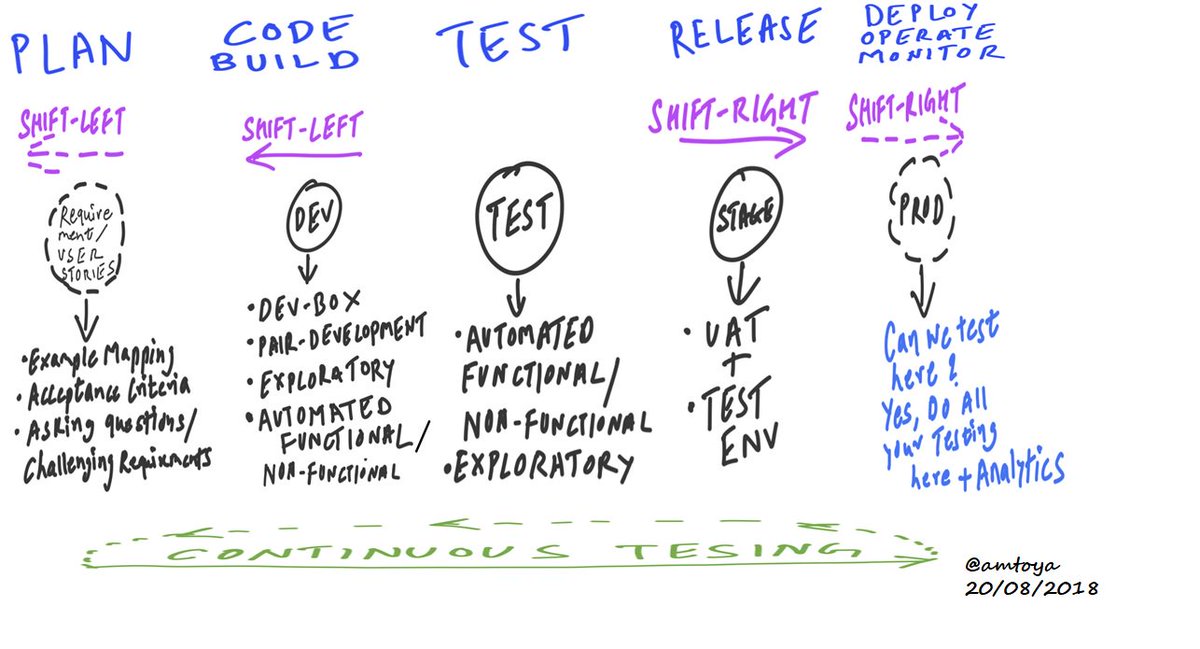 PLAN
CODE
BUILD
TEST
RELEASE
DEPLOY
OPERATE
MONITOR
SHIFT-LEFT
SHIFT-LEFT
SHIFT-RIGHT
SHIFT-RIGHT
Require
ment/
USER
STORIES
• Example Mapping
• Acceptance Criteria
• Asking questions/
Challenging Requirments
DEV
• DEV-BOX
• PAIR-DEVELOPMENT
• EXPLORATORY
• AUTOMATED
FUNCTIONAL/
NON-FUNCTIONAL
TEST
• AUTOMATED
FUNCTIONAL/
NON-FUNCTIONAL
• EXPLORATORY
STAGE
• UAT
+
• TEST
ENV
PROD
Can we test
here?
Yes, Do All
your Testing
here + Analytics
CONTINUOUS TESING
@amtoya
20/08/2018